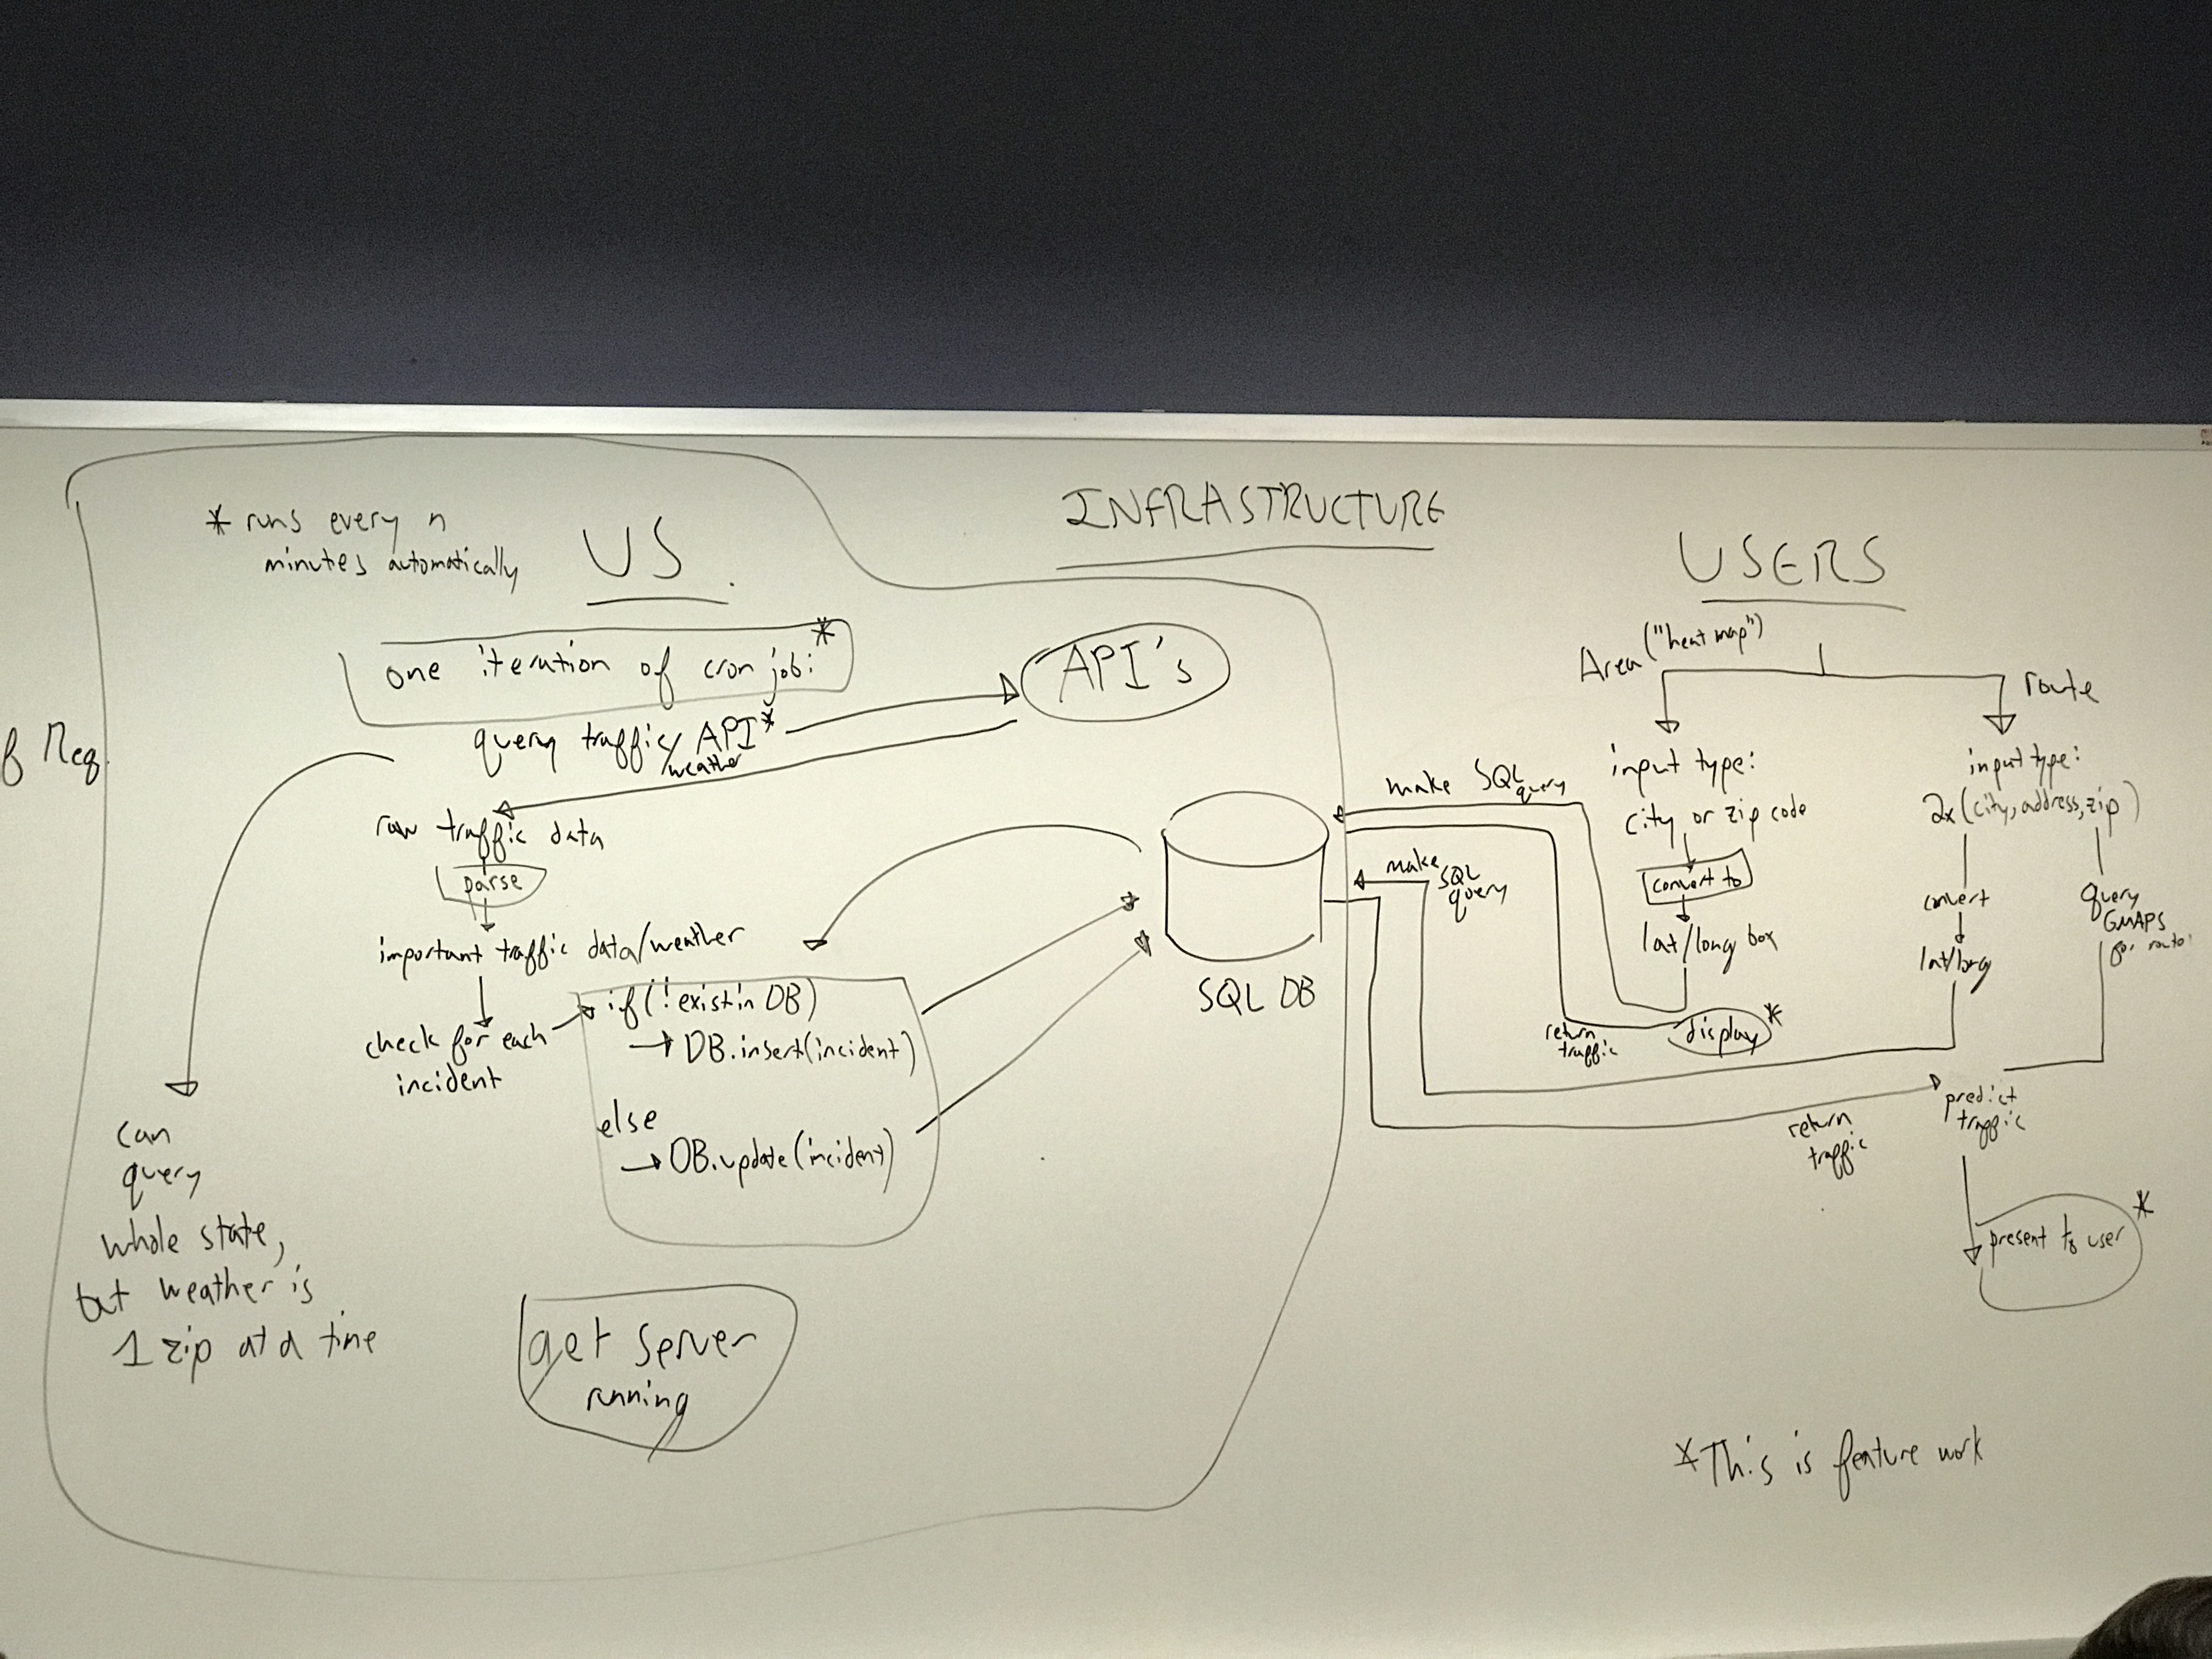 INFRASTRUCTURE
* runs every n
minutes automatically
US
one iteration of cron job: *
query traffic/ API *
weather
API's
raw traffic data
parse
important traffic data/weather
check for each
incident
if(!exist in DB)
→ DB.insert(incident)
else
→ DB.update(incident)
can
query
whole state,
but weather is
1 zip at a time
get server
running
SQL DB
USERS
Area ("heat map")
input type:
city or zip code
convert to
lat/long box
display *
make SQL
query
return
traffic
route
input type:
2x (city, address, zip)
convert
lat/long
query
GMAPS
for route
make
SQL
query
return
traffic
predict
traffic
present to user *
* This is feature work